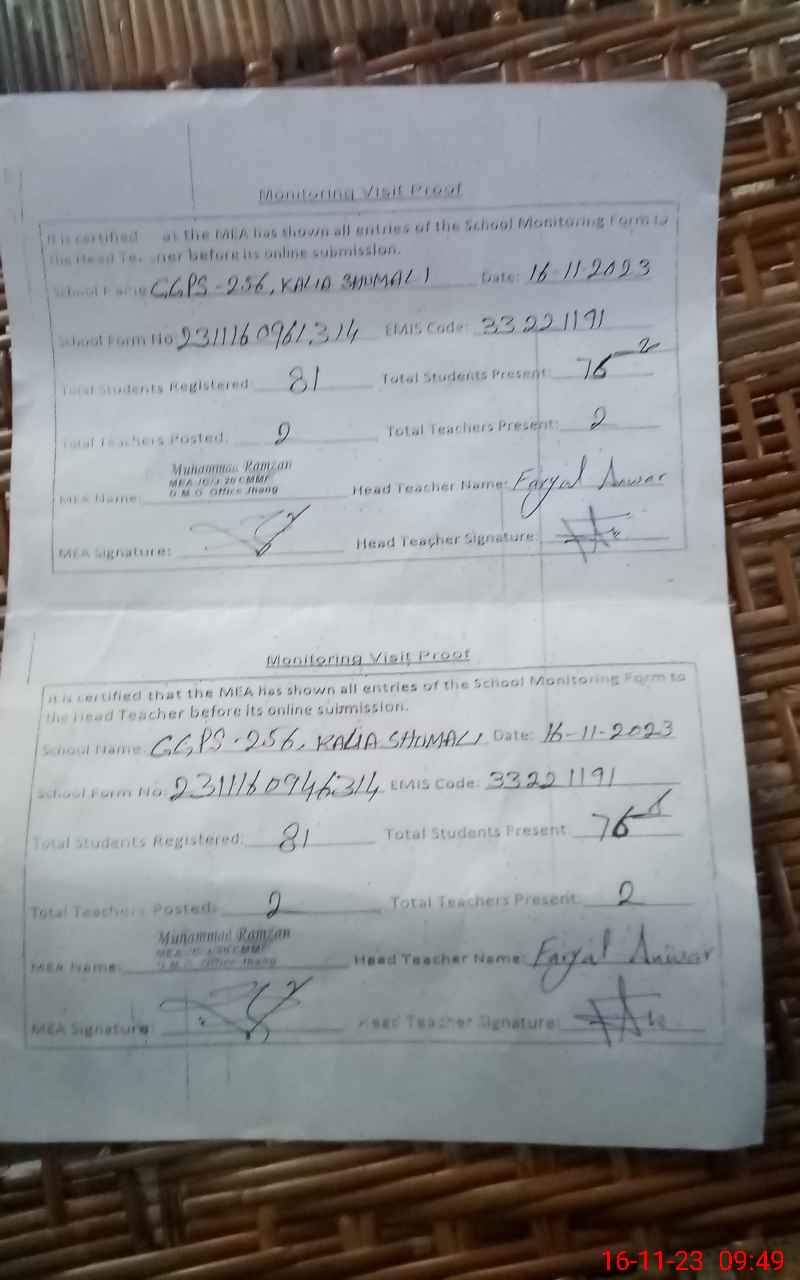 Monitoring Visit Proof
It is certified at the MEA has shown all entries of the School Monitoring Form to
the Head Te ner before its online submission.
School Name GGPS-256, KALIA SHUMALI Date: 16-11-2023
School Form No 231116096 314 EMIS Code: 33221191
Total Students Registered 81 Total Students Present: 76
Total Teachers Posted: 2 Total Teachers Present: 2
Muhammad Ramzan
D.M.O Office Jhang
MEA Name: Head Teacher Name: Faryal Anwar
MEA Signature: Head Teacher Signature:
Monitoring Visit Proof
It is certified that the MEA has shown all entries of the School Monitoring Form to
the Head Teacher before its online submission.
School Name: GGPS-256, KALIA SHUMALI Date: 16-11-2023
School Form No: 2311160946314 EMIS Code: 33221191
Total Students Registered: 81 Total Students Present: 76
Total Teachers Posted: 2 Total Teachers Present: 2
Muhammad Ramzan
D.M.O Office Jhang
MEA Name: Head Teacher Name: Faryal Anwar
MEA Signature: Head Teacher Signature:
16-11-23 09:49